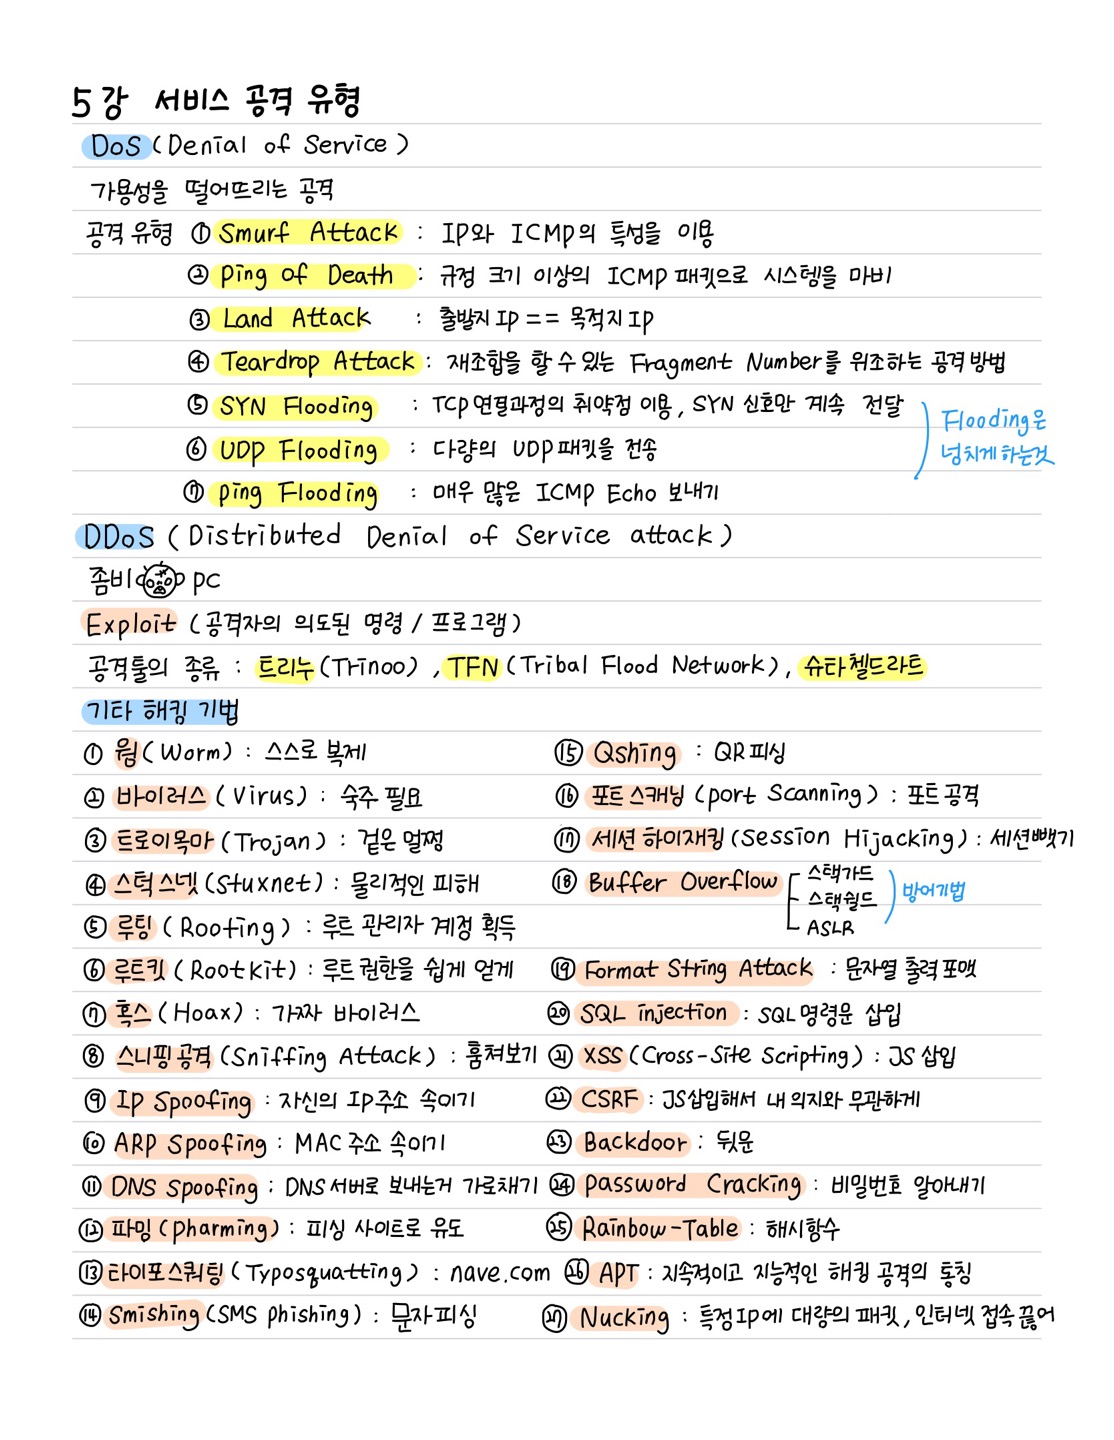 5강 서비스 공격 유형
DoS (Denial of Service)
가용성을 떨어뜨리는 공격
공격 유형 ① Smurf Attack : IP와 ICMP의 특성을 이용
② Ping of Death : 규정 크기 이상의 ICMP 패킷으로 시스템을 마비
③ Land Attack : 출발지 IP == 목적지 IP
④ Teardrop Attack : 재조합을 할 수 있는 Fragment Number를 위조하는 공격 방법
⑤ SYN Flooding : TCP 연결과정의 취약점 이용, SYN 신호만 계속 전달
⑥ UDP Flooding : 다량의 UDP 패킷을 전송
⑦ Ping Flooding : 매우 많은 ICMP Echo 보내기
Flooding은
넘치게 하는것
DDoS (Distributed Denial of Service attack)
좀비 PC
Exploit (공격자의 의도된 명령 / 프로그램)
공격툴의 종류 : 트리누(Trinoo), TFN (Tribal Flood Network), 슈타첼드라트
기타 해킹 기법
① 웜 (Worm) : 스스로 복제
② 바이러스 (Virus) : 숙주 필요
③ 트로이목마 (Trojan) : 겉은 멀쩡
④ 스턱스넷 (Stuxnet) : 물리적인 피해
⑤ 루팅 (Rooting) : 루트 관리자 계정 획득
⑥ 루트킷 (Rootkit) : 루트 권한을 쉽게 얻게
⑦ 혹스 (Hoax) : 가짜 바이러스
⑧ 스니핑 공격 (Sniffing Attack) : 훔쳐보기
⑨ IP Spoofing : 자신의 IP주소 속이기
⑩ ARP Spoofing : MAC 주소 속이기
⑪ DNS Spoofing : DNS 서버로 보내는거 가로채기
⑫ 파밍 (Pharming) : 피싱 사이트로 유도
⑬ 타이포스쿼팅 (Typosquatting) : nave.com
⑭ Smishing (SMS Phishing) : 문자 피싱
⑮ Qshing : QR 피싱
⑯ 포트 스캐닝 (Port Scanning) : 포트 공격
⑰ 세션 하이재킹 (Session Hijacking) : 세션뺏기
⑱ Buffer Overflow
스택가드
스택쉴드
ASLR
방어기법
⑲ Format String Attack : 문자열 출력 포맷
⑳ SQL injection : SQL 명령문 삽입
㉑ XSS (Cross-Site Scripting) : JS 삽입
㉒ CSRF : JS삽입해서 내 의지와 무관하게
㉓ Backdoor : 뒷문
㉔ Password Cracking : 비밀번호 알아내기
㉕ Rainbow-Table : 해시함수
㉖ APT : 지속적이고 지능적인 해킹 공격의 통칭
㉗ Nucking : 특정 IP에 대량의 패킷, 인터넷 접속 끊어